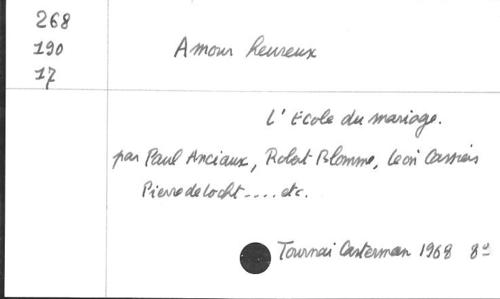 268
190
17
Amour heureux
L'Ecole du mariage.
par Paul Anciaux, Robert Blomme, Leon Cassiers
Pierre de Locht .... etc.
Tournai Casterman 1968 8°